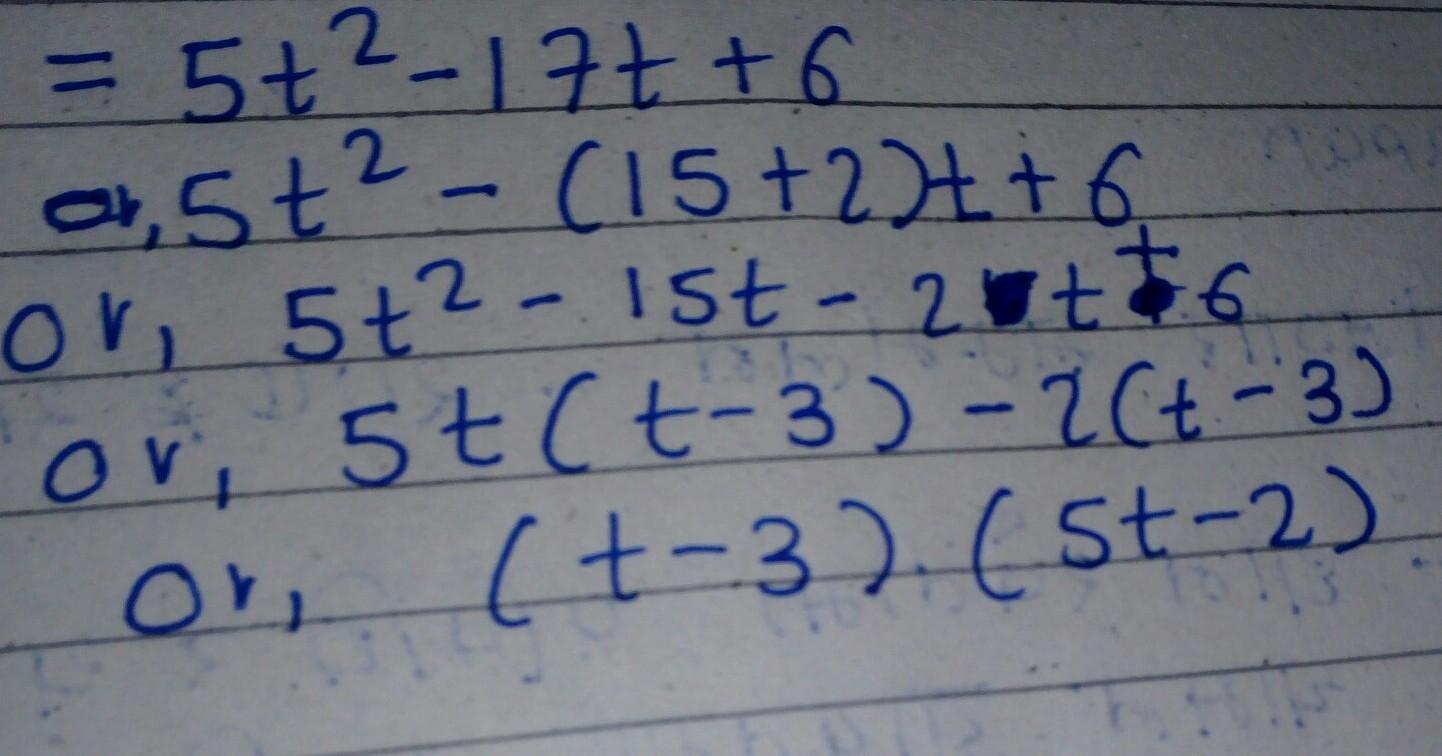 = 5t² - 17t + 6
or, 5t² - (15+2)t + 6
or, 5t² - 15t - 2t + 6
or, 5t(t-3) - 2(t-3)
or, (t-3).(5t-2)